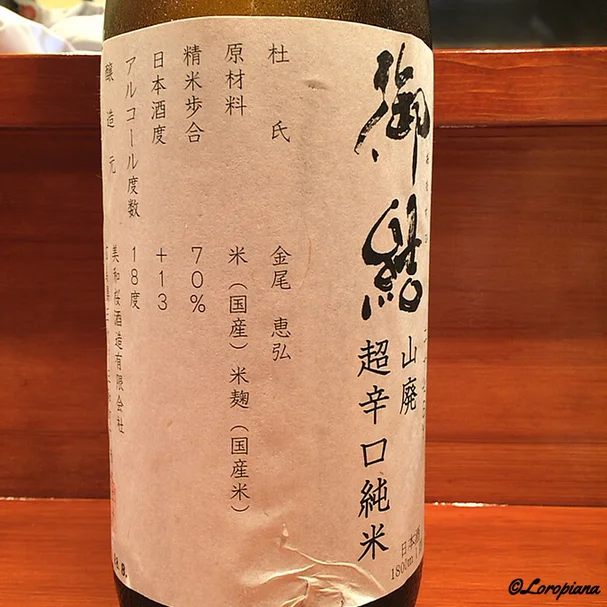 御結
山廃
超辛口純米
日本酒
1800m
杜氏 金尾 恵弘
原材料 米(国産)米麹(国産米)
精米歩合 70%
日本酒度 +13
アルコール度数 18度
醸造元 美和桜酒造有限会社
©Loropiana